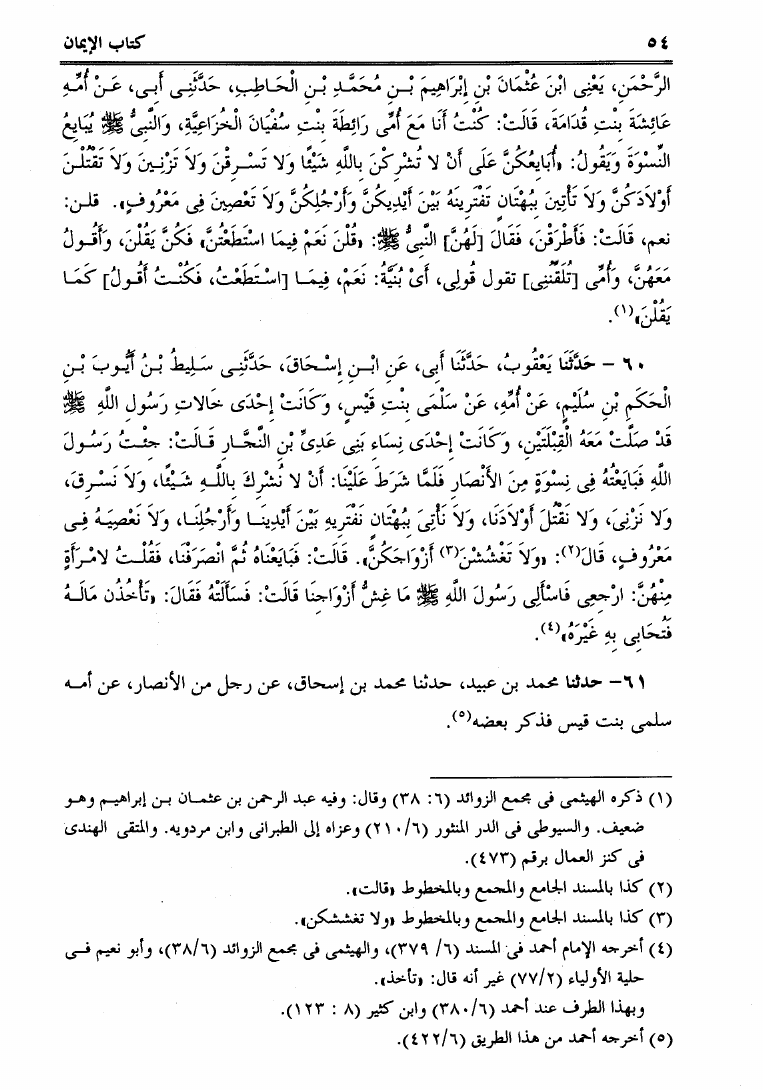 ٥٤ كتاب الإيمان
الرَّحْمَنِ، يَعْنِى ابْنَ عُثْمَانَ بْنِ إِبْرَاهِيمَ بْنِ مُحَمَّدِ بْنِ الْحَاطِبِ، حَدَّثَنِى أَبِى، عَنْ أُمِّهِ
عَائِشَةَ بِنْتِ قُدَامَةَ، قَالَتْ: كُنْتُ أَنَا مَعَ أُمِّى رَائِطَةَ بِنْتِ سُفْيَانَ الْخُزَاعِيَّةِ، وَالنَّبِىُّ ﷺ يُبَايِعُ
النِّسْوَةَ وَيَقُولُ: «أُبَايِعُكُنَّ عَلَى أَنْ لا تُشْرِكْنَ بِاللَّهِ شَيْئًا وَلا تَسْرِقْنَ وَلا تَزْنِينَ وَلا تَقْتُلْنَ
أَوْلادَكُنَّ وَلا تَأْتِينَ بِبُهْتَانٍ تَفْتَرِينَهُ بَيْنَ أَيْدِيكُنَّ وَأَرْجُلِكُنَّ وَلا تَعْصِينَ فِى مَعْرُوفٍ». قلن:
نعم، قَالَتْ: فَأَطْرَقْنَ، فَقَالَ [لَهُنَّ] النبىُّ ﷺ: «قُلْنَ نَعَمْ فِيمَا اسْتَطَعْتُنَّ» فَكُنَّ يَقُلْنَ، وَأَقُولُ
مَعَهُنَّ، وَأُمِّى [تُلَقِّنُنِى] تقول قُولِى، أَىْ بُنَيَّةُ: نَعَمْ، فِيمَا [اسْتَطَعْتُ، فَكُنْتُ أَقُولُ] كَمَا
يَقُلْنَ»(١).
٦٠ - حَدَّثَنَا يَعْقُوبُ، حَدَّثَنَا أَبِى، عَنِ ابْنِ إِسْحَاقَ، حَدَّثَنِى سَلِيطُ بْنُ أَيُّوبَ بْنِ
الْحَكَمِ بْنِ سُلَيْمٍ، عَنْ أُمِّهِ، عَنْ سَلْمَى بِنْتِ قَيْسٍ، وَكَانَتْ إِحْدَى خَالاتِ رَسُولِ اللَّهِ ﷺ
قَدْ صَلَّتْ مَعَهُ الْقِبْلَتَيْنِ، وَكَانَتْ إِحْدَى نِسَاءِ بَنِى عَدِىِّ بْنِ النَّجَّارِ قَالَتْ: جِئْتُ رَسُولَ
اللَّهِ فَبَايَعْتُهُ فِى نِسْوَةٍ مِنَ الأَنْصَارِ فَلَمَّا شَرَطَ عَلَيْنَا: أَنْ لا نُشْرِكَ بِاللَّهِ شَيْئًا، وَلا نَسْرِقَ،
وَلا نَزْنِىَ، وَلا نَقْتُلَ أَوْلادَنَا، وَلا نَأْتِىَ بِبُهْتَانٍ نَفْتَرِيهِ بَيْنَ أَيْدِينَا وَأَرْجُلِنَا، وَلا نَعْصِيَهُ فِى
مَعْرُوفٍ، قَالَ(٢): «وَلا تَغْشُشْنَ(٣) أَزْوَاجَكُنَّ». قَالَتْ: فَبَايَعْنَاهُ ثُمَّ انْصَرَفْنَا، فَقُلْتُ لامْرَأَةٍ
مِنْهُنَّ: ارْجِعِى فَاسْأَلِى رَسُولَ اللَّهِ ﷺ مَا غِشُّ أَزْوَاجِنَا قَالَتْ: فَسَأَلَتْهُ فَقَالَ: «تَأْخُذُن مَالَهُ
فَتُحَابِى بِهِ غَيْرَهُ»(٤).
٦١- حدثنا محمد بن عبيد، حدثنا محمد بن إسحاق، عن رجل من الأنصار، عن أمه
سلمى بنت قيس فذكر بعضه(٥).
(١) ذكره الهيثمى فى مجمع الزوائد (٦: ٣٨) وقال: وفيه عبد الرحمن بن عثمان بن إبراهيم وهو
ضعيف. والسيوطى فى الدر المنثور (٢١٠/٦) وعزاه إلى الطبرانى وابن مردويه. والمتقى الهندى
فى كنز العمال برقم (٤٧٣).
(٢) كذا بالمسند الجامع والمجمع وبالمخطوط «قالت».
(٣) كذا بالمسند الجامع والمجمع وبالمخطوط «ولا تغششكن».
(٤) أخرجه الإمام أحمد فى المسند (٦/ ٣٧٩)، والهيثمى فى مجمع الزوائد (٣٨/٦)، وأبو نعيم فى
حلية الأولياء (٧٧/٢) غير أنه قال: «تأخذ».
وبهذا الطرف عند أحمد (٣٨٠/٦) وابن كثير (٨ : ١٢٣).
(٥) أخرجه أحمد من هذا الطريق (٤٢٢/٦).